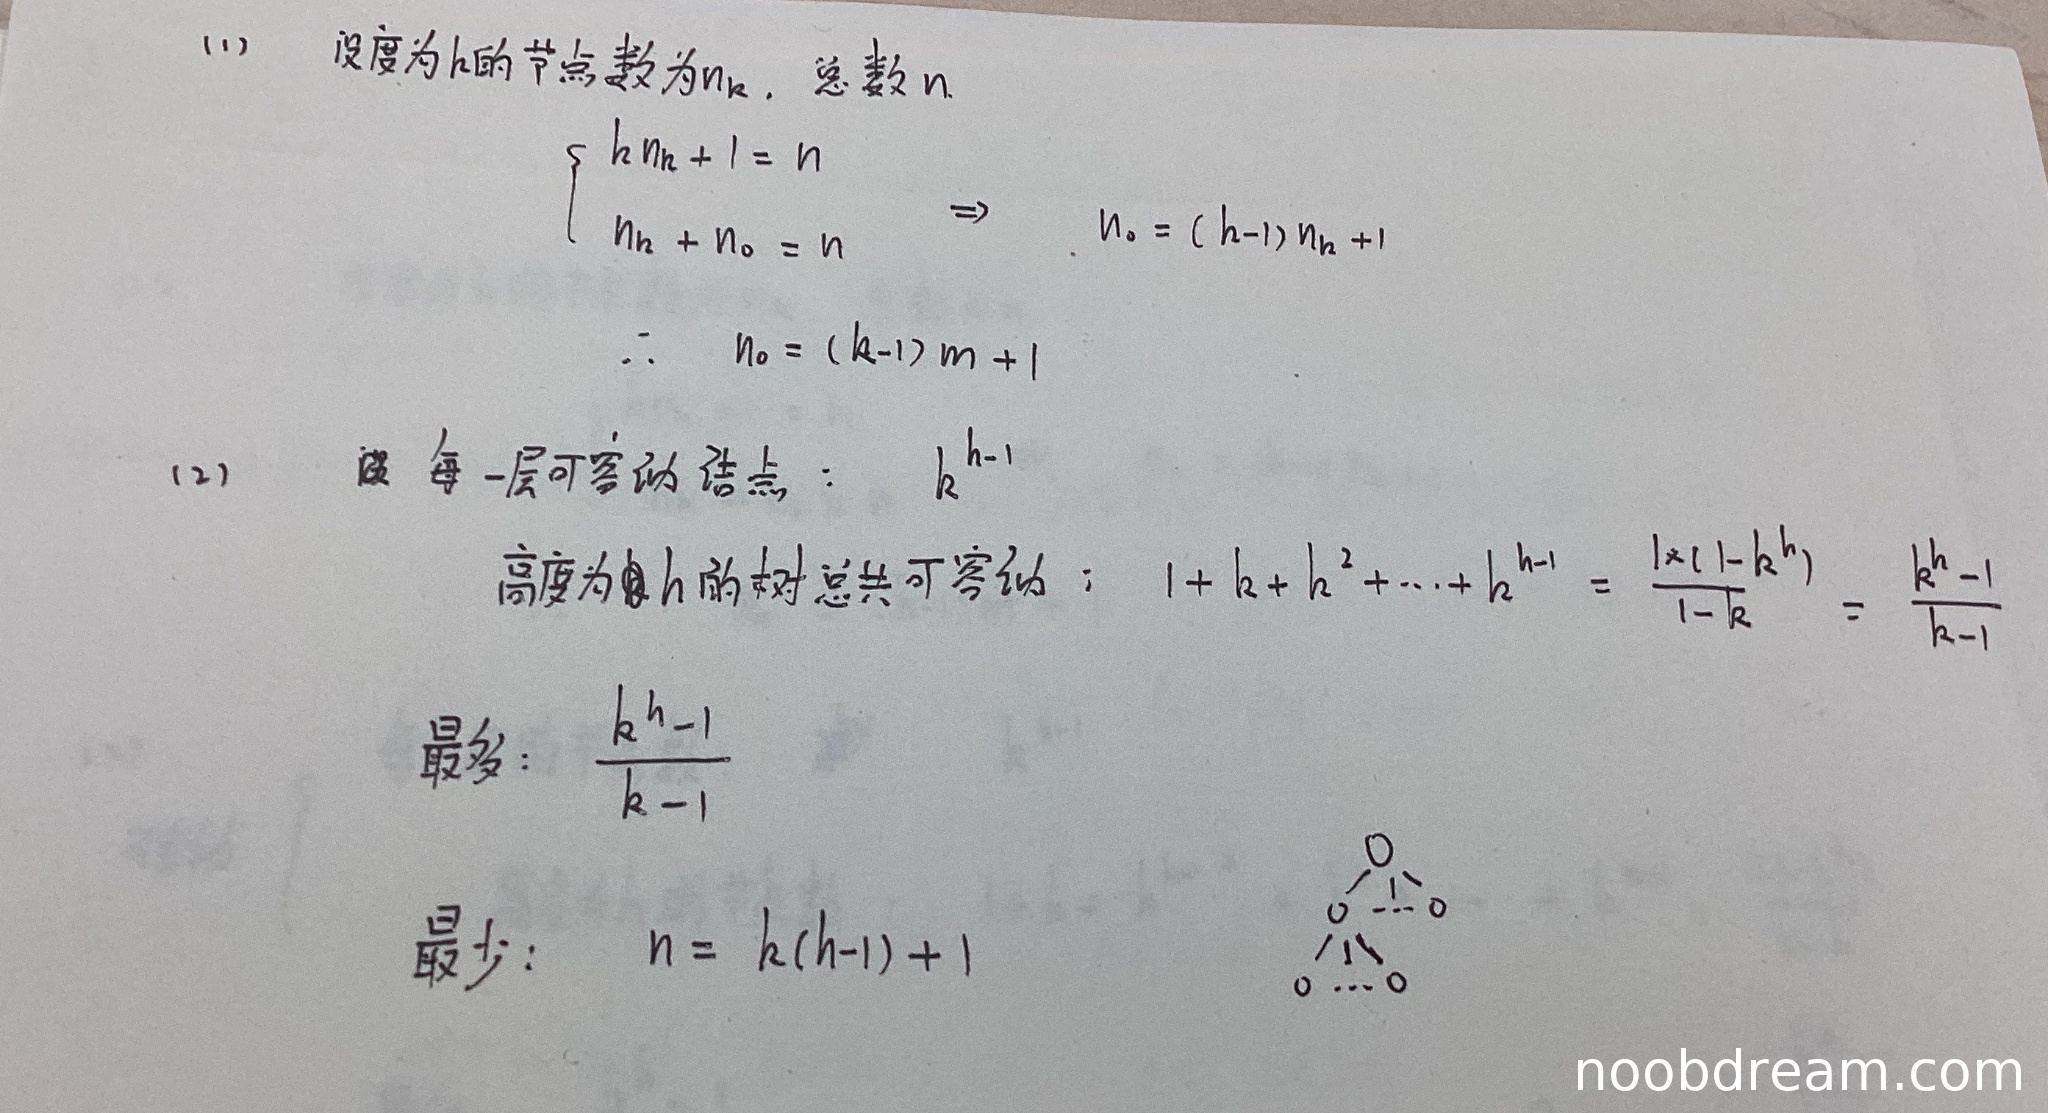 (1) 设度为k的节点数为nₖ. 总数n.
{ knₖ + 1 = n
nₖ + n₀ = n
⇒ n₀ = (k-1)nₖ + 1
∴ n₀ = (k-1)m + 1
(2) 每一层可容纳结点: k^(h-1)
高度为h的树总共可容纳: 1 + k + k² + ... + k^(h-1) = 1×(1-k^h)/(1-k) = (k^h - 1)/(k-1)
最多: (k^h - 1)/(k-1)
最少: n = k(h-1) + 1
noobdream.com